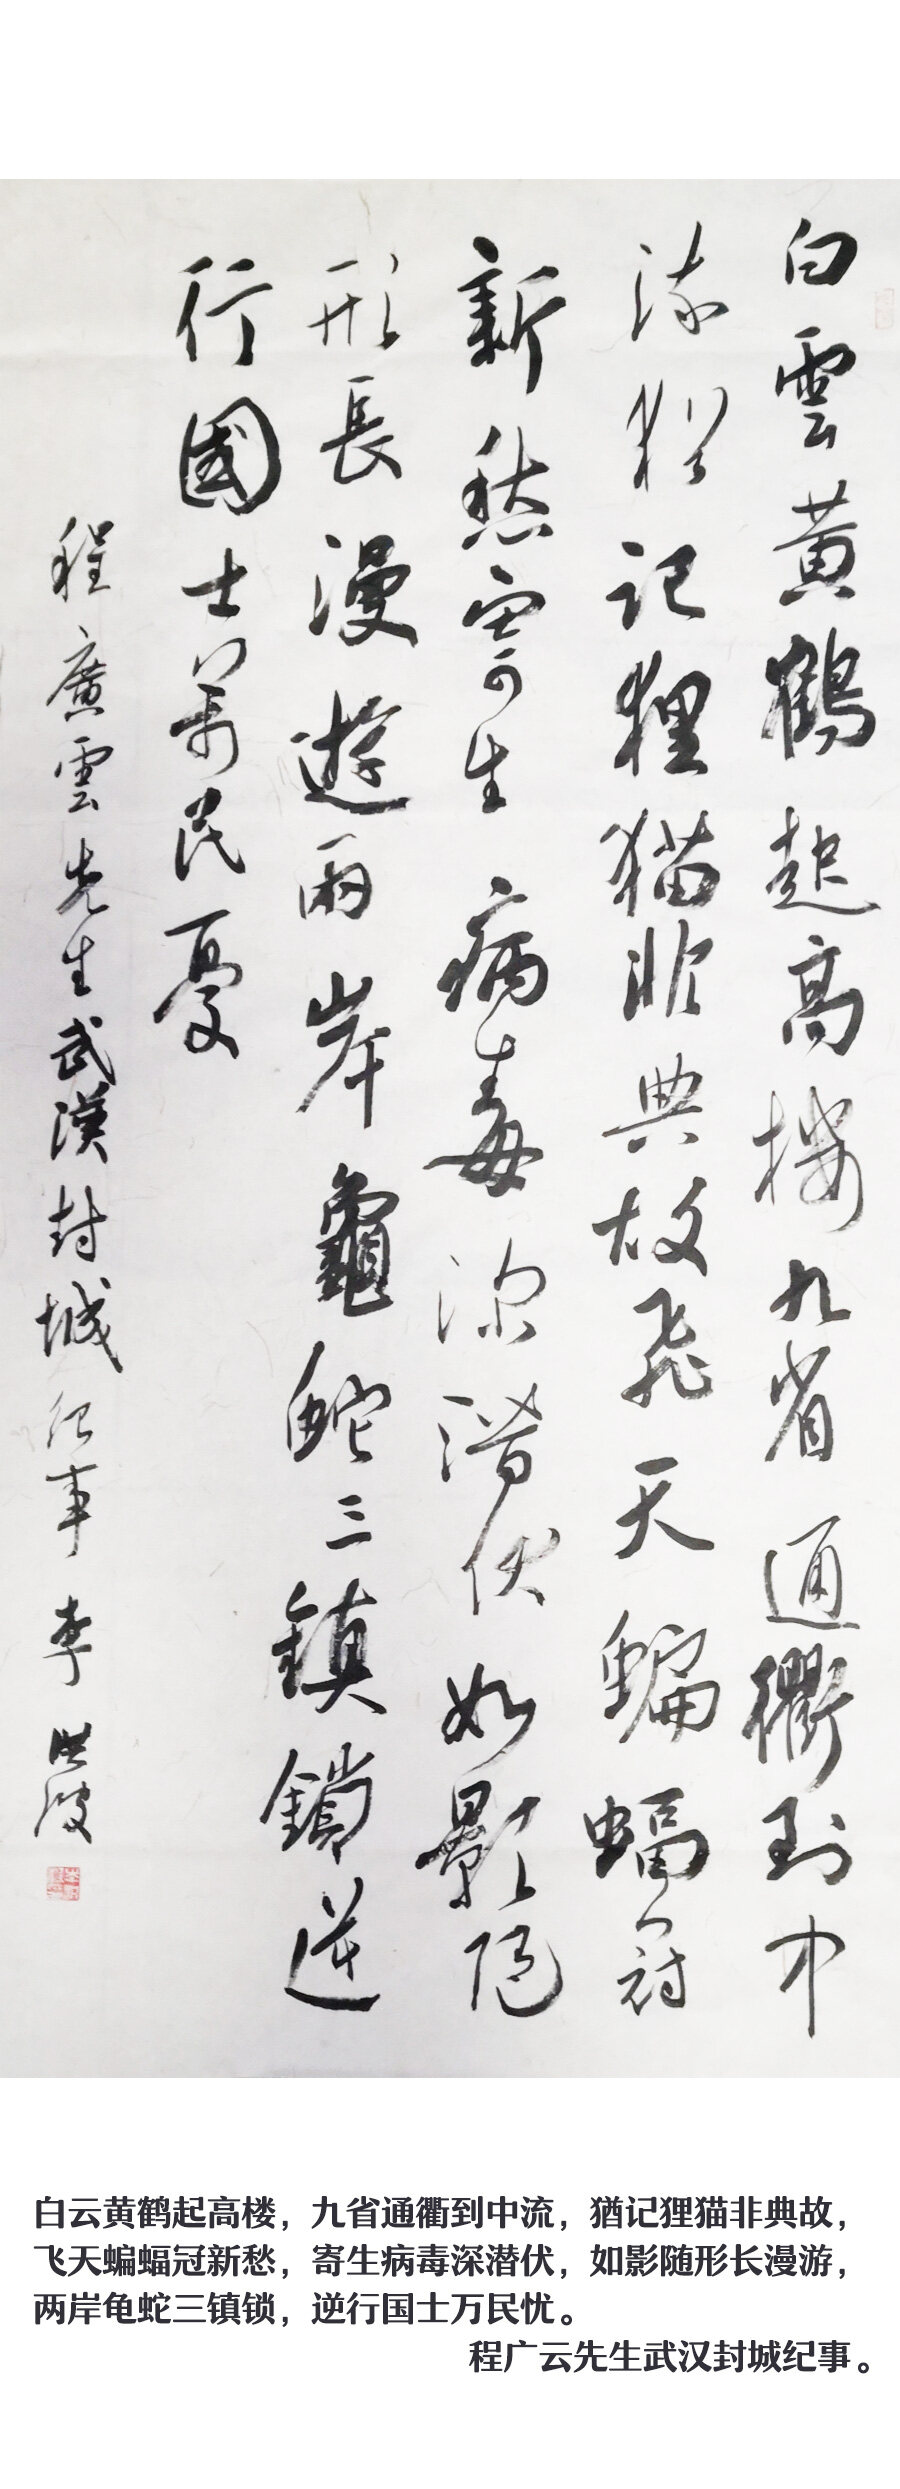 白雲黄鶴起高楼九省通衢到中
流猶記狸猫非典故飛天蝙蝠冠
新愁寄生病毒深潛伏如影随
形長漫遊兩岸龜蛇三鎮鎖逆
行國士萬民憂
程廣雲先生武漢封城纪事 李洪波
白云黄鹤起高楼，九省通衢到中流，犹记狸猫非典故，
飞天蝙蝠冠新愁，寄生病毒深潜伏，如影随形长漫游，
两岸龟蛇三镇锁，逆行国士万民忧。
程广云先生武汉封城纪事。